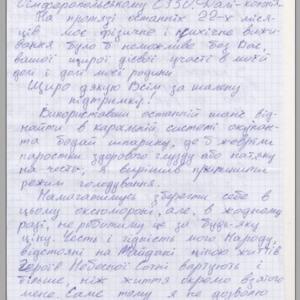 Сімферопольському СІЗО. Далі-
На протязі останніх 22-х міся-
ців моє фізичне і психічне вижи-
вання було б неможливе без Вас,
вашої щирої дієвої участі в моїй
долі і долі моєї родини
Щиро дякую Всім за шалену
підтримку!
Використавши останній шанс від-
найти в каральній системі окупан-
та бодай шпарину, де б жевріли
паростки здорового глузду або натяку
на честь, я вирішив припинити
режим голодування.
Намагатимусь зберегти себе в
цьому оксюмороні, але, в жодному
разі, не робитиму це за будь-яку
ціну. Честь і гідність мого Народу,
відстояні на Майдані ціною життів
Героїв Небесної Сотні вартують і
більше, ніж життя окремо взятого
мене. Саме тому я не дозволю